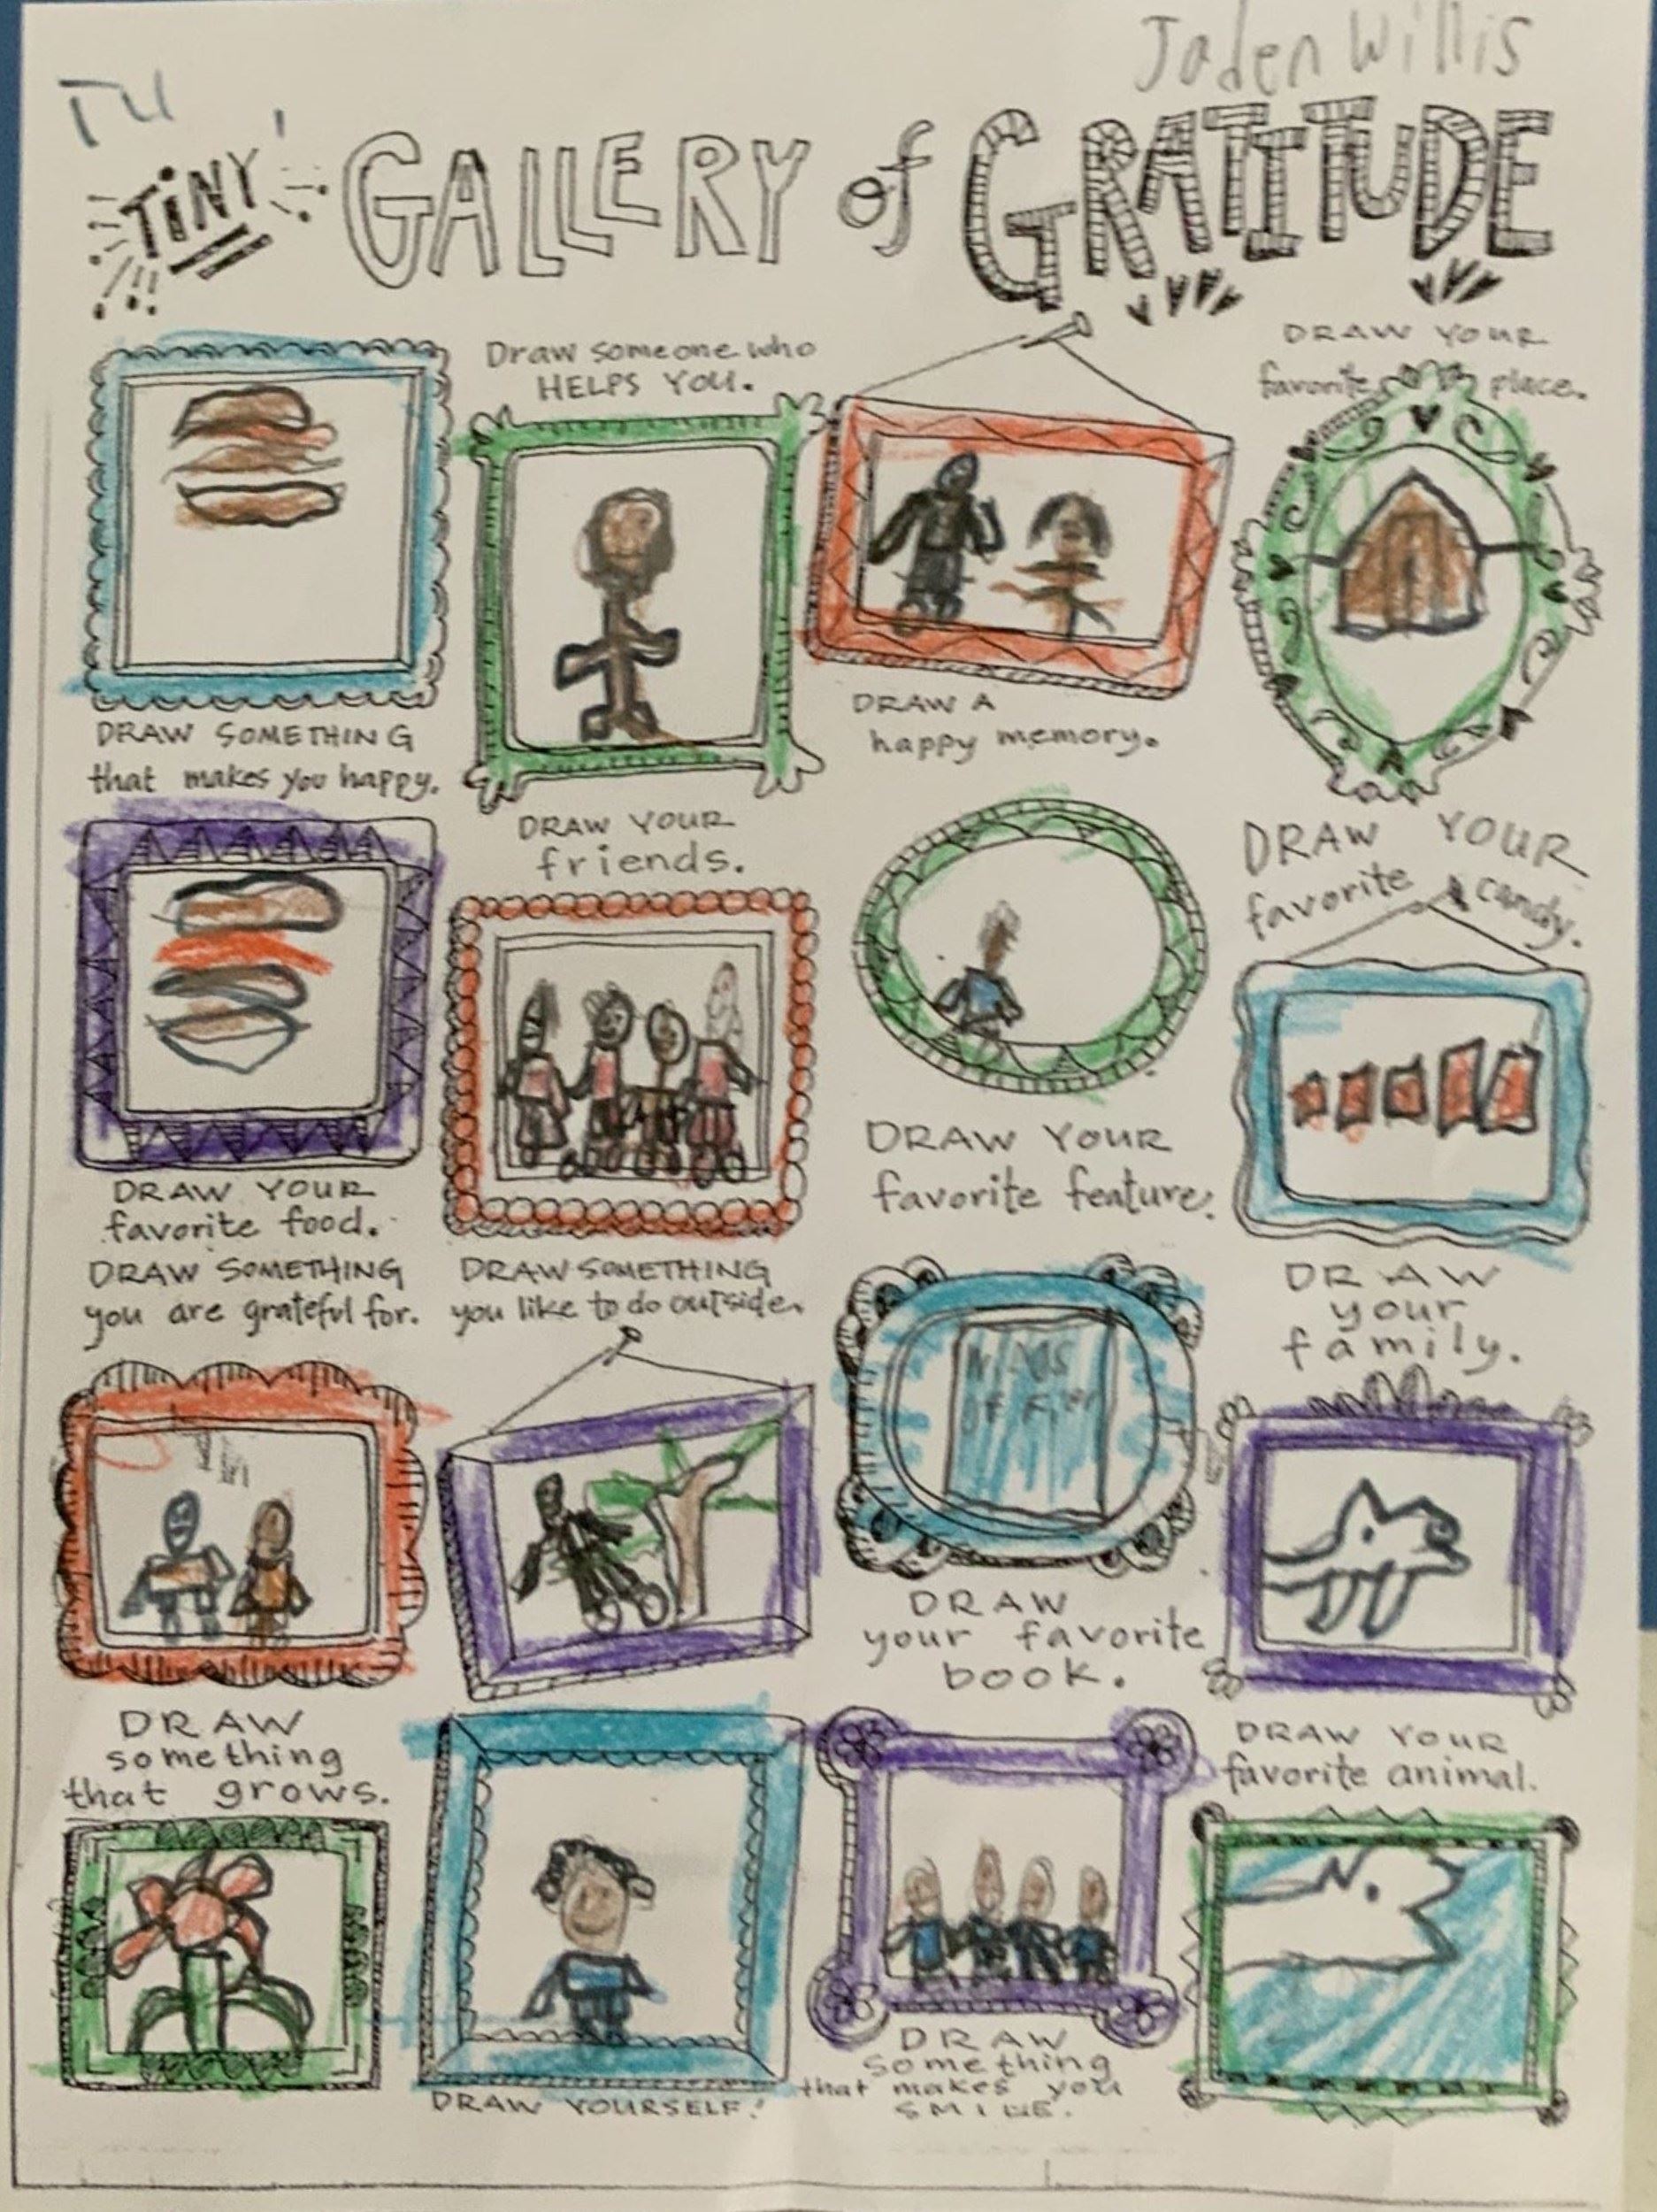 Jaden Willis
TINY GALLERY of GRATITUDE
DRAW SOMETHING
that makes you happy.
Draw someone who
HELPS YOU.
DRAW A
happy memory.
DRAW YOUR
favorite place.
DRAW YOUR
favorite food.
DRAW YOUR
friends.
DRAW YOUR
favorite feature.
DRAW YOUR
favorite candy.
DRAW SOMETHING
you are grateful for.
DRAW SOMETHING
you like to do outside.
DRAW
your favorite
book.
DRAW
your
family.
DRAW
something
that grows.
DRAW YOURSELF!
DRAW
something
that makes you
SMILE.
DRAW YOUR
favorite animal.